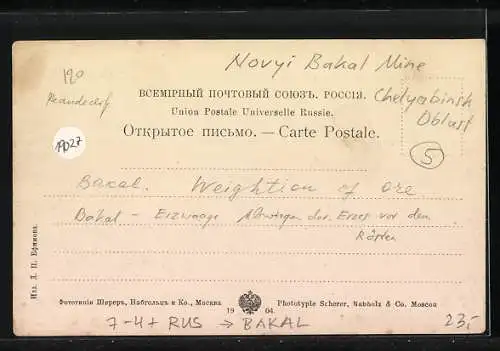 Novyi Bakal Mine
190
ВСЕМІРНЫЙ ПОЧТОВЫЙ СОЮЗЪ. РОССІЯ.
Chelyabinsk
Oblast
Union Postale Universelle Russie.
Открытое письмо. — Carte Postale.
19027
5
Bakal. Weightion of ore
Bakal - Erzwaage Abwiegen des Erzes vor dem
Rösten
Изд. Д. П. Ефимова.
Фототипія Шереръ, Набгольцъ и Ко., Москва
1904.
Phototypie Scherer, Nabholz & Co. Moscou
7-4+ RUS → BAKAL
23,-